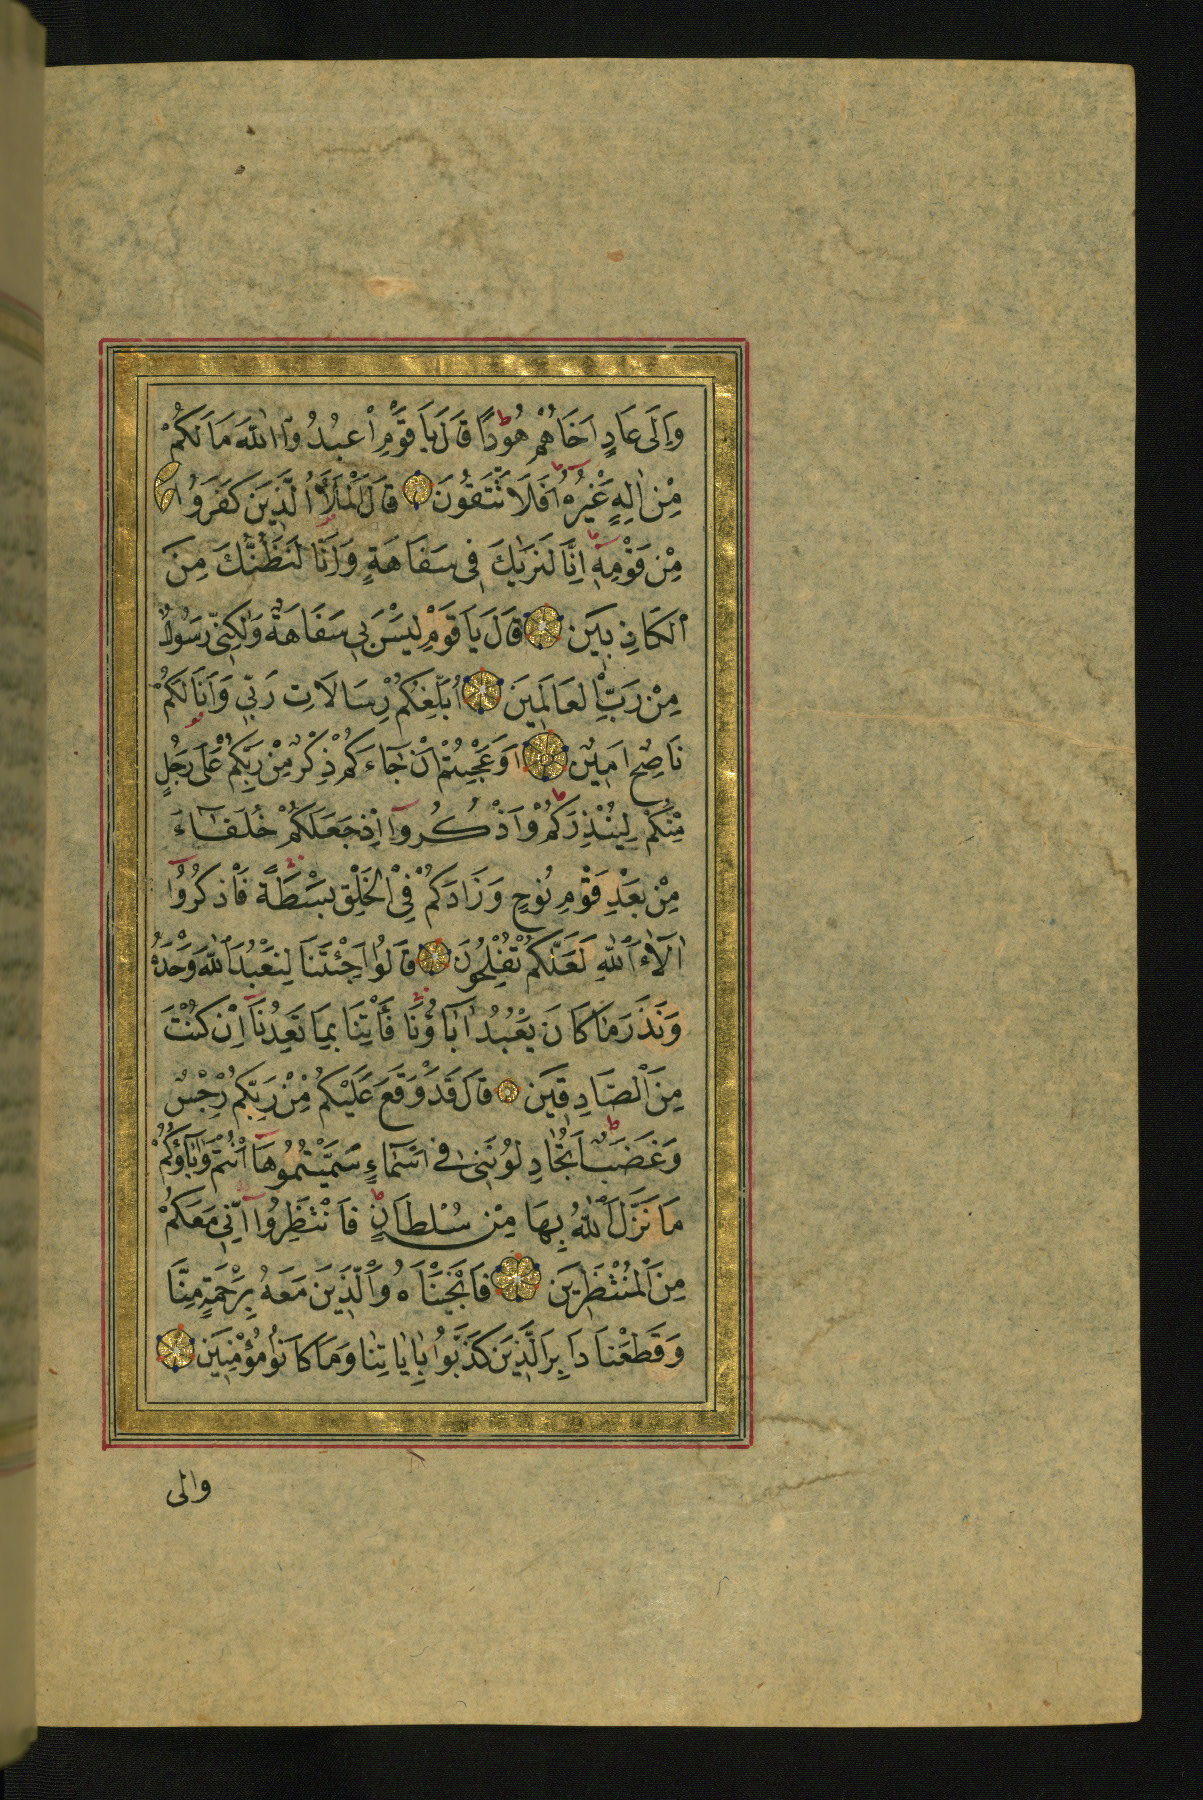 وَاِلَى عَادٍ اَخَاهُمْ هُودًا قَالَ يَا قَوْمِ اعْبُدُوا اللّٰهَ مَا لَكُمْ
مِنْ اِلٰهٍ غَيْرُهُ اَفَلَا تَتَّقُونَ قَالَ الْمَلَأُ الَّذِينَ كَفَرُوا
مِنْ قَوْمِهِ اِنَّا لَنَرٰيكَ فِى سَفَاهَةٍ وَاِنَّا لَنَظُنُّكَ مِنَ
الْكَاذِبِينَ قَالَ يَا قَوْمِ لَيْسَ بِى سَفَاهَةٌ وَلٰكِنِّى رَسُولٌ
مِنْ رَبِّ الْعَالَمِينَ اُبَلِّغُكُمْ رِسَالَاتِ رَبِّى وَاَنَا لَكُمْ
نَاصِحٌ اَمِينٌ اَوَعَجِبْتُمْ اَنْ جَاءَكُمْ ذِكْرٌ مِنْ رَبِّكُمْ عَلَى رَجُلٍ
مِنْكُمْ لِيُنْذِرَكُمْ وَاذْكُرُوا اِذْ جَعَلَكُمْ خُلَفَاءَ
مِنْ بَعْدِ قَوْمِ نُوحٍ وَزَادَكُمْ فِى الْخَلْقِ بَسْطَةً فَاذْكُرُوا
اٰلَاءَ اللّٰهِ لَعَلَّكُمْ تُفْلِحُونَ قَالُوا اَجِئْتَنَا لِنَعْبُدَ اللّٰهَ وَحْدَهُ
وَنَذَرَ مَا كَانَ يَعْبُدُ اٰبَاؤُنَا فَأْتِنَا بِمَا تَعِدُنَا اِنْ كُنْتَ
مِنَ الصَّادِقِينَ قَالَ قَدْ وَقَعَ عَلَيْكُمْ مِنْ رَبِّكُمْ رِجْسٌ
وَغَضَبٌ اَتُجَادِلُونَنِى فِى اَسْمَاءٍ سَمَّيْتُمُوهَا اَنْتُمْ وَاٰبَاؤُكُمْ
مَا نَزَّلَ اللّٰهُ بِهَا مِنْ سُلْطَانٍ فَانْتَظِرُوا اِنِّى مَعَكُمْ
مِنَ الْمُنْتَظِرِينَ فَاَنْجَيْنَاهُ وَالَّذِينَ مَعَهُ بِرَحْمَةٍ مِنَّا
وَقَطَعْنَا دَابِرَ الَّذِينَ كَذَّبُوا بِاٰيَاتِنَا وَمَا كَانُوا مُؤْمِنِينَ
والى